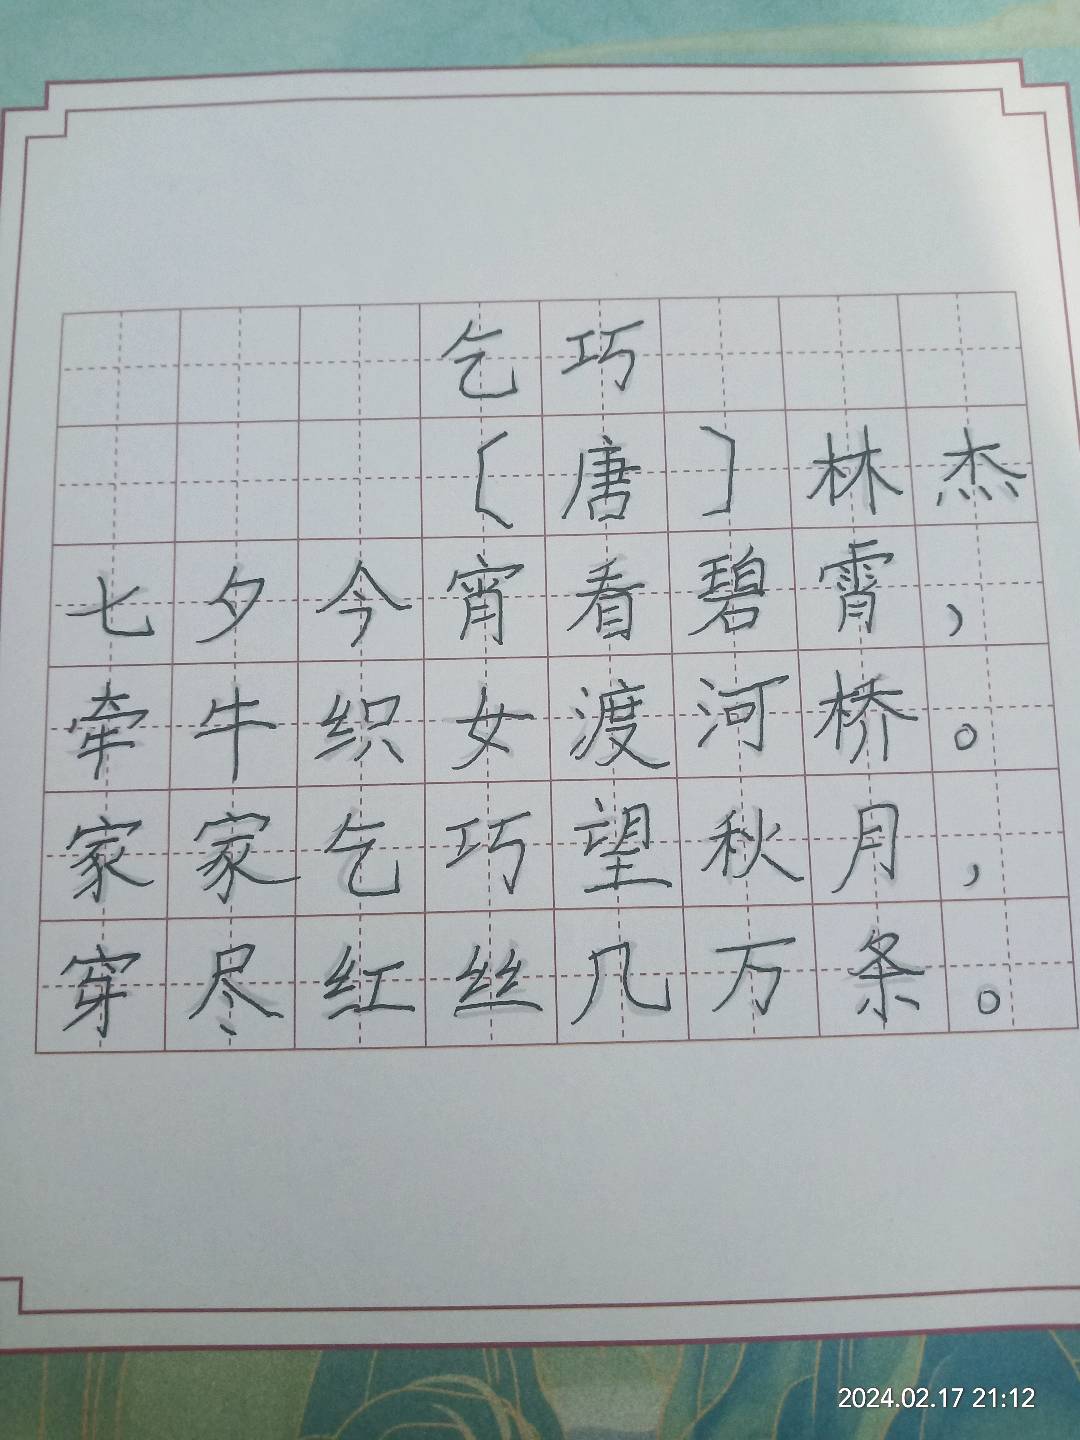 乞巧
〔唐〕林杰
七夕今宵看碧霄，
牵牛织女渡河桥。
家家乞巧望秋月，
穿尽红丝几万条。
2024.02.17 21:12